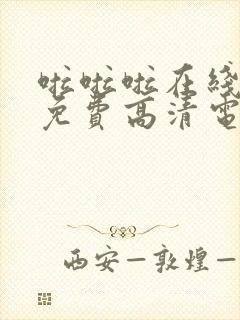 啦啦啦在线
免費高清電
西安—敦煌—